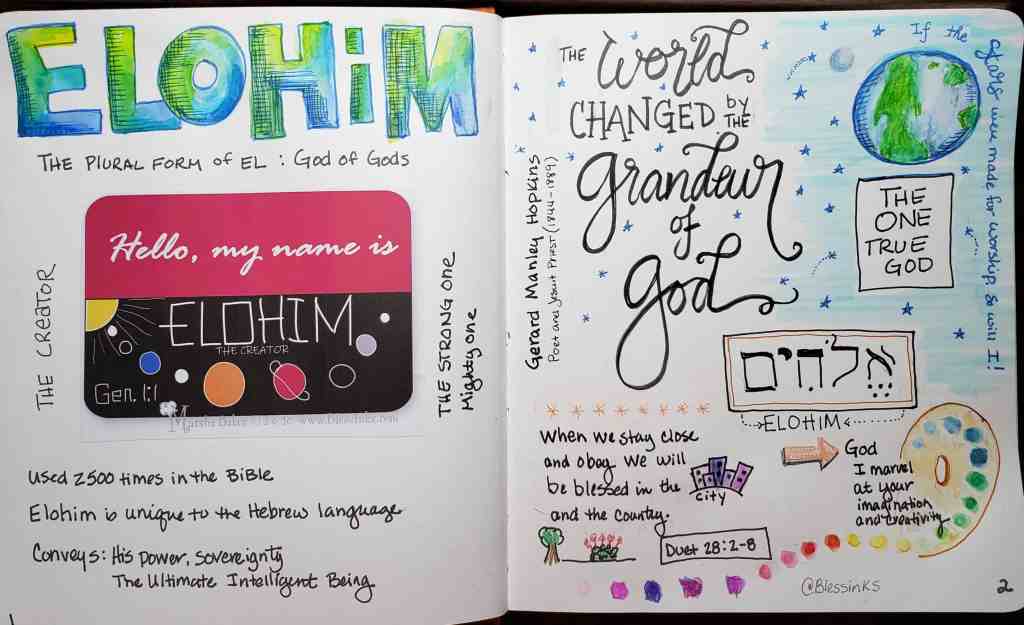 ELOHiM
THE PLURAL FORM OF EL : GOD OF GODS
THE CREATOR
Hello, my name is
ELOHIM
THE CREATOR
Gen. 1:1
THE STRONG ONE
Mighty one
Used 2500 times in the BiBle
Elohim is unique to the Hebrew language
Conveys: His power, Sovereignty
The Ultimate Intelligent Being
1
THE World
CHANGED by THE
grandeur
of
god
Gerard Manley Hopkins
Poet and Jesuit Priest (1844-1889)
If the stars were made for worship, so will I!
THE
ONE
TRUE
GOD
אֱלֹהִים
ELOHIM
When we stay close
and obey we will
be blessed in the
city
and the country.
Duet 28:2-8
God
I marvel
at your
imagination
and creativity
@BlessinKS
2